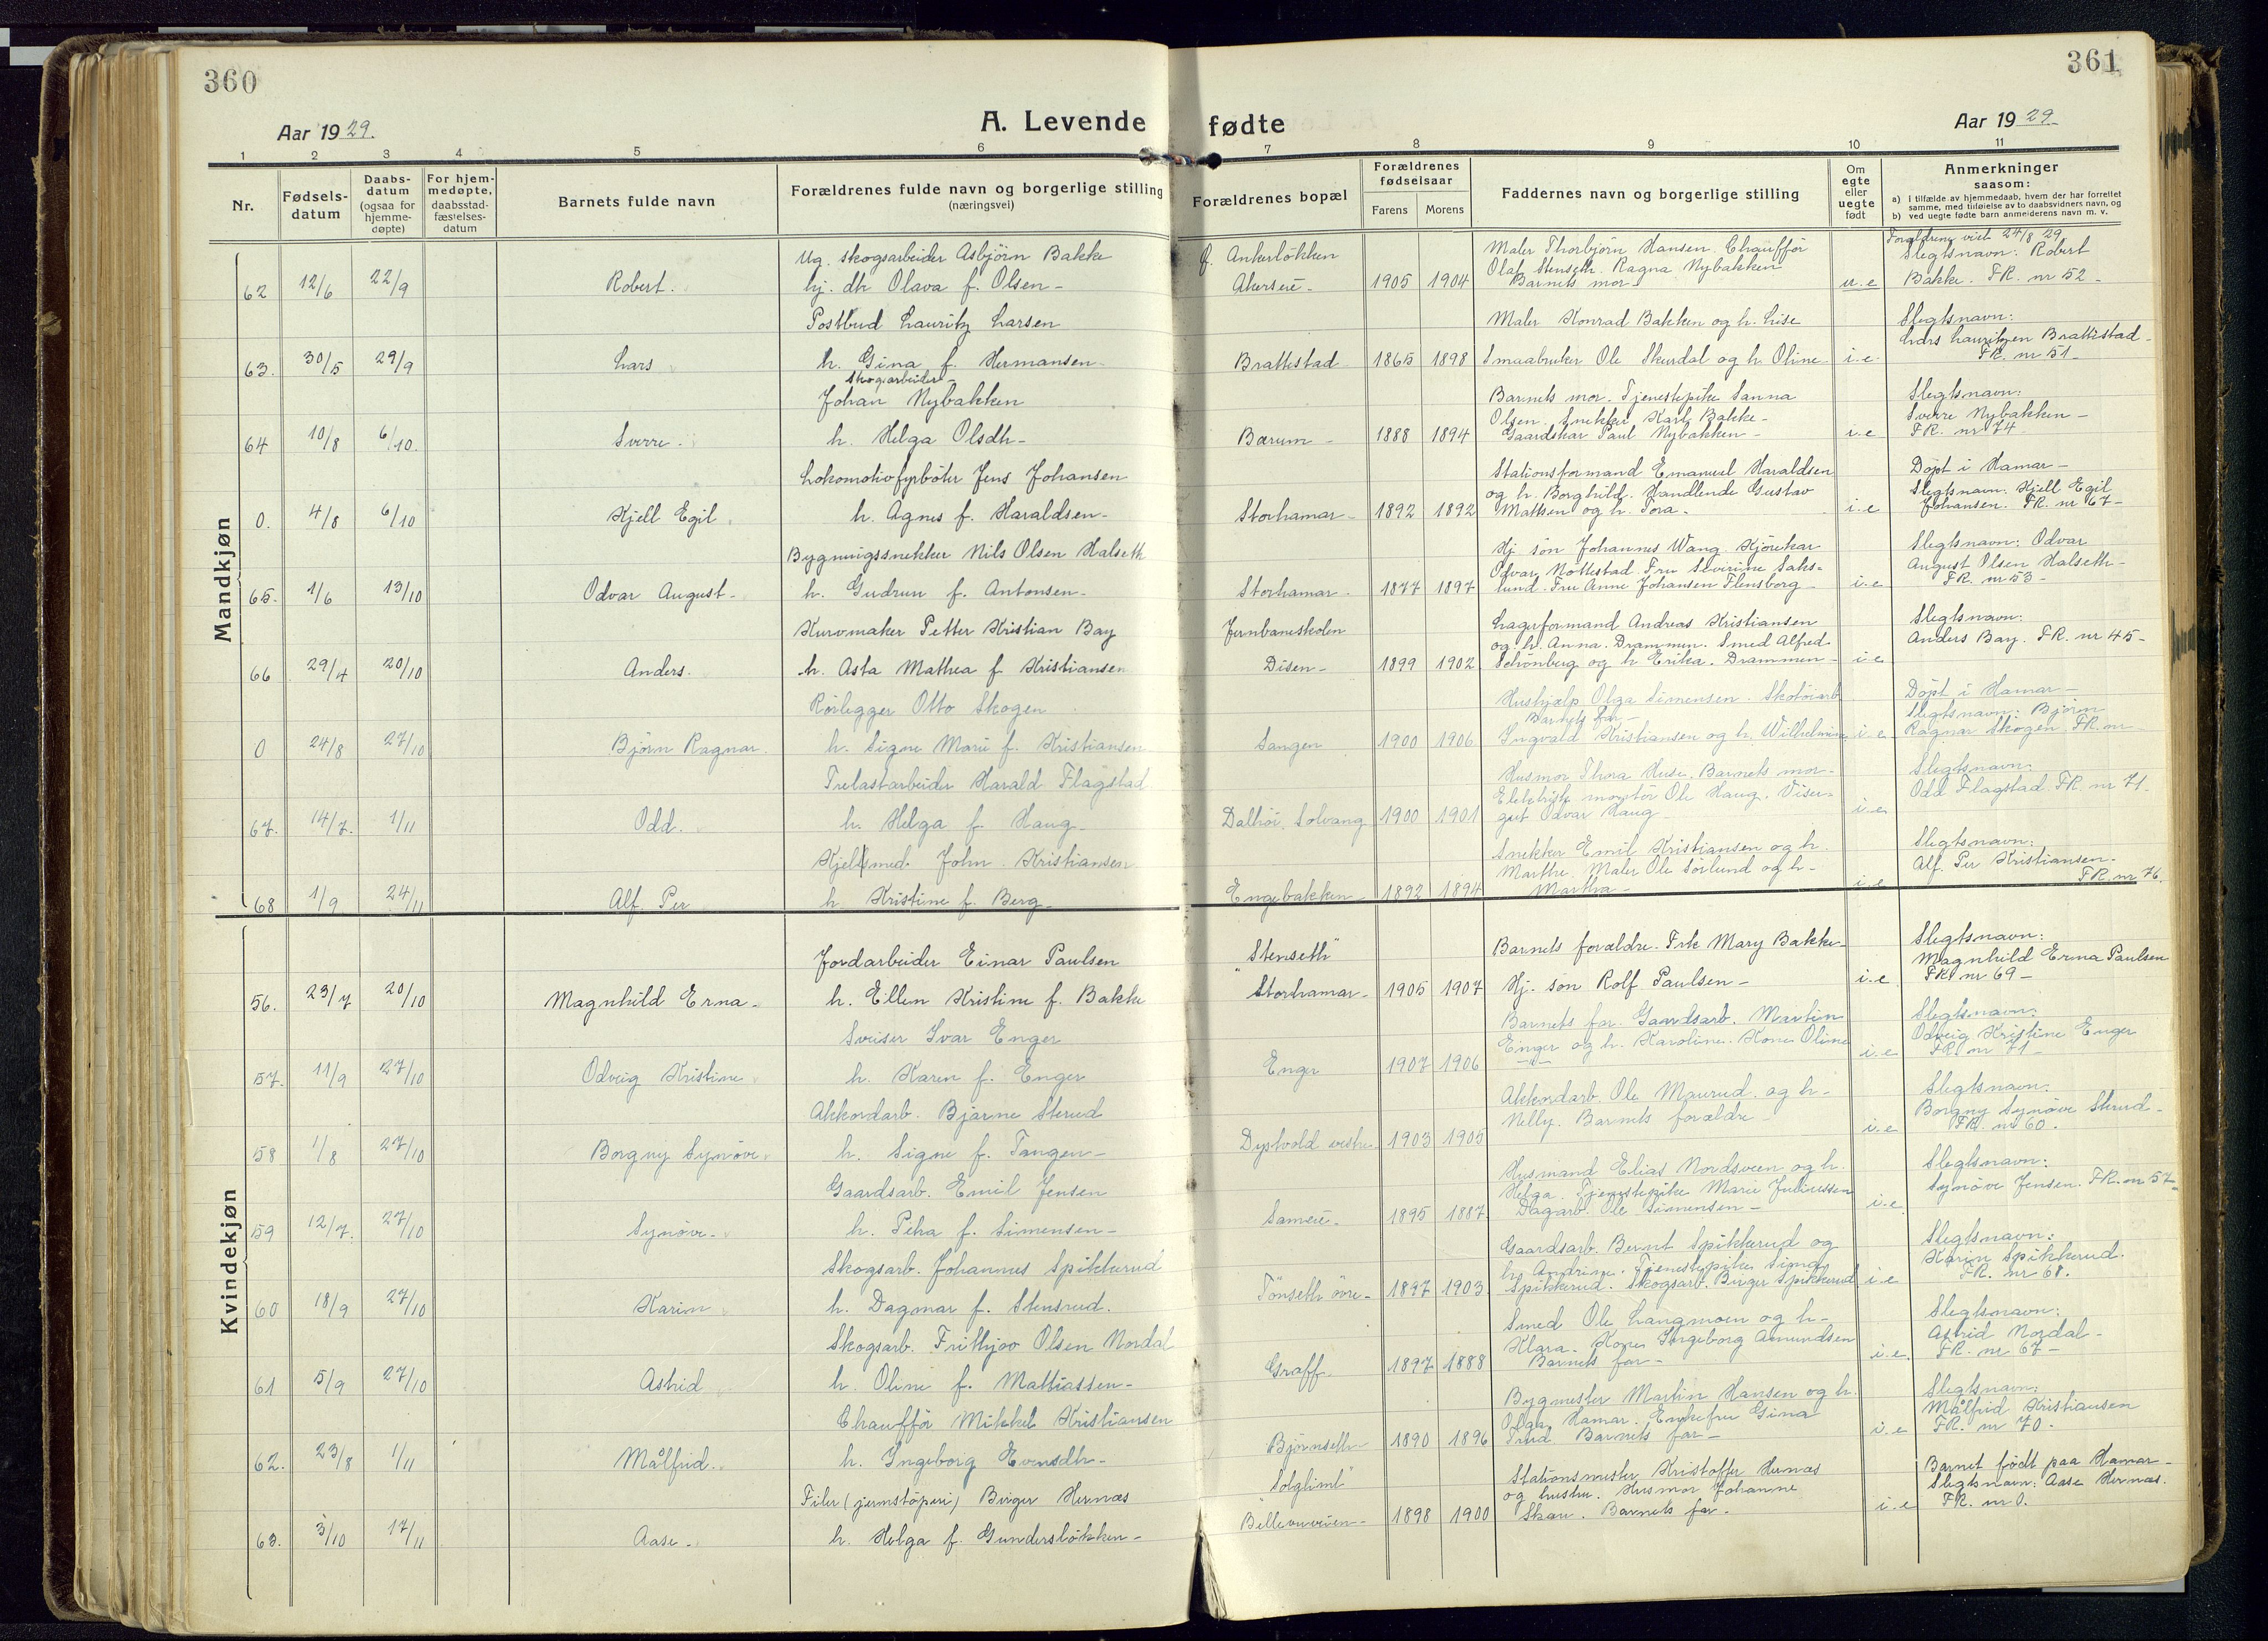 360
361
Aar 1929.
A. Levende fødte
Aar 1929.
1 2 3 4 5 6 7 8 9 10 11
Nr.
Fødsels-
datum
Daabs-
datum
(ogsaa for
hjemme-
døpte)
For hjem-
medøpte,
daabsstad-
fæstelses-
datum
Barnets fulde navn
Forældrenes fulde navn og borgerlige stilling
(næringsvei)
Forældrenes bopæl
Forældrenes
fødselsaar
Farens Morens
Faddernes navn og borgerlige stilling
Om
egte
eller
uegte
født
Anmerkninger
saasom:
a) i tilfælde av hjemmedaab, hvem der har forrettet
samme, med tilføielse av to daabsvidners navn, og
b) ved uegte fødte barn anmelderens navn m. v.
Mandkjøn
62 12/6 22/9 Robert.
Ug. skogsarbeider Asbjörn Bakke
hj. dh Olava f. Olsen-
f. Ankerlökken
Akersvei- 1905 1904
Maler Thorbjörn Hansen. Chaufför
Olaf Stenseth. Ragna Nybakken
Barnets mor-
u.e
Forældrene viet 24/8 29
Slegtsnavn: Robert
Bakke. FR. nr 52-
63. 30/5 29/9 Lars
Postbud Lauritz Larsen
h. Gina f. Hermansen-
Brattestad 1865 1898
Maler Konrad Bakken og h. Lise
Smaabruker Ole Skurdal og h. Oline-
i.e.
Slegtsnavn:
Lars Lauritzen Brattestad-
FR. nr 51-
64 10/8 6/10. Sverre.
skogsarbeider-
Johan Nybakken
h. Helga Olsdh-
Bærum- 1888 1894
Barnets mor. Tjenestepike Sanna
Olsen. Snekker Karl Bakke-
Gaardskar Paul Nybakken-
i.e
Slegtsnavn:
Sverre Nybakken-
FR. nr 74
0. 4/8 6/10 Kjell Egil
Lokomotivfyrböter Jens Johansen
h. Agnes f. Haraldsen-
Storhamar- 1892 1892
Stationsformand Emanuel Haraldsen
og h. Borghild. Handlende Gustav
Mattsen og h. Tora-
i.e
Döpt i Hamar-
Slegtsnavn: Kjell Egil
Johansen. FR. nr 67-
65. 1/6 13/10 Odvar August-
Bygningssnekker Nils Olsen Halseth
h. Gudrun f. Antonsen-
Storhamar- 1877 1897
Hj. sön Johannes Wang. Kjörekar
Odvar Nöttestad. Fru Severine Saks-
lund. Fru Anne Johansen Flensborg-
i.e
Slegtsnavn: Odvar
August Olsen Halseth-
FR. nr 53-
66 29/4 20/10 Anders.
Kurvmaker Petter Kristian Bay
h. Asta Mathea f. Kristiansen
Jernbaneskolen
Disen- 1899 1902
Lagerformand Andreas Kristiansen
og h. Anna. Drammen. Smed Alfred
Schönberg og h. Erika. Drammen-
i.e
Slegtsnavn:
Anders Bay. FR. nr 45-
0 24/8 27/10 Björn Ragnar.
Rörlegger Otto Skogen
h. Signe Marie f. Kristiansen
Sangen 1900 1906
Hushjælp Olga Simensen. Skotöiarb
Barnets far-
Ingvald Kristiansen og h. Wilhelmine
i.e
Döpt i Hamar-
Slegtsnavn: Björn
Ragnar Skogen. FR. nr-
67. 14/7. 1/11 Odd.
Trelastarbeider Harald Flagstad
h. Helga f. Haug-
Dalhöi, Solvang 1900 1901
Husmor Thora Huse. Barnets mor-
Elektrisk montör Ole Haug. Viser-
gut Odvar Haug-
i.e.
Slegtsnavn:
Odd Flagstad. FR. nr 71.
68 1/9 24/11 Alf. Per
Kjelsmed. John. Kristiansen
h. Kristine f. Berg-
Engebakken- 1892 1894
Snekker Emil Kristiansen og h.
Marthe. Maler Ole Sörlund og h-
Martha-
i.e
Slegtsnavn:
Alf. Per Kristiansen-
FR. nr 76.
Kvindekjøn
56. 23/7 20/10 Magnhild Erna-
Jordarbeider Einar Paulsen
h. Ellen Kristine f. Bakke
"Stenseth"
Storhamar- 1905 1907
Barnets forældre. Frk Mary Bakke-
Hj. sön Rolf Paulsen-
i.e
Slegtsnavn:
Magnhild Erna Paulsen
FR. nr 69-
57. 11/9 27/10 Odveig Kristine
Sveiser Ivar Enger
h. Karen f. Enger
Enger 1907 1906
Barnets far. Gaardsarb. Martin
Enger og h. Karoline. Kone Oline
-"-
i.e
Slegtsnavn:
Odveig Kristine Enger
FR. nr 71-
58 1/8 27/10 Borgny Synöve.
Akkordarb. Bjarne Skrud
h. Signe f. Tangen-
Dystvold vestre- 1903 1905
Akkordarb. Ole Maurud. og h-
Nelly. Barnets forældre-
i.e
Slegtsnavn:
Borgny Synöve Skrud-
FR. nr 60.
59 12/7. 27/10 Synöve-
Gaardsarb. Emil Jensen
h. Petra f. Simensen-
Sameie- 1895 1887
Husmand Elias Nordsveen og h.
Helga. Tjenestepike Marie Juliussen
Dagarb. Ole Simensen-
i.e.
Slegtsnavn:
Synöve Jensen. FR. nr 57-
60 18/9 27/10 Karin
Skogsarb. Johannes Spikkerud
h. Dagmar f. Stensrud.
Tönseth övre- 1897 1903
Gaardsarb. Bernt Spikkerud og
h. Andrine. Tjenestepike Signe
Spikkerud. Skogsarb. Birger Spikkerud
i.e
Slegtsnavn:
Karin Spikkerud.
FR. nr 68.
61 5/9 27/10 Astrid
Skogsarb. Frithjov Olsen Nordal
h. Oline f. Mathiassen-
Graff- 1897 1888
Smed Ole Langmoen og h-
Klara. Kone Ingeborg Amundsen
Barnets far-
i.e.
Slegtsnavn:
Astrid Nordal-
FR. nr 67-
62. 23/8 1/11 Målfrid.
Chaufför Mikkel Kristiansen
h. Ingeborg Evensdh-
Björnseth- 1890 1896
Bygmester Martin Hansen og h.
Olga, Hamar. Enkefru Gina
Trud. Barnets far-
i.e
Slegtsnavn:
Målfrid Kristiansen
FR. nr 70.
63. 3/10 17/11 Aase-
Filer (jernstöperi) Birger Hernæs
h. Helga f. Gunderslökken-
"Solglimt"
Bellevueveien- 1898 1900
Stationsmester Kristoffer Hernæs
og hustru. Husmor Johanne
Skau. Barnets far-
i.e
Barnet født paa Hamar-
Slegtsnavn: Aase Hernæs.
FR. nr 0.